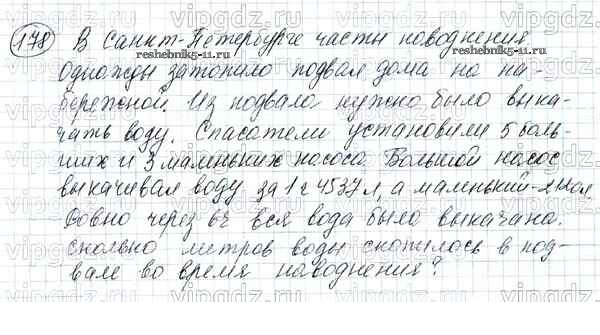 178 В Санкт-Петербурге часты наводнения.
reshebnik5-11.ru
Однажды затопило подвал дома на на-
бережной. Из подвала нужно было выка-
чать воду. Спасатели установили 5 боль-
ших и 3 маленьких насоса. Большой насос
выкачивал воду за 1 ч 4537 л, а маленький -
Ровно через 6ч вся вода была выкачана.
Сколько метров воды скопилось в под-
вале во время наводнения?
reshebnik5-11.ru